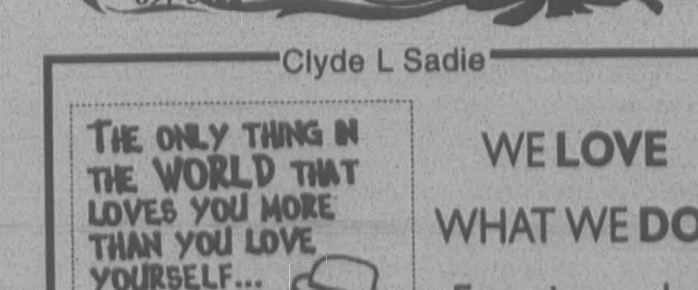 Clyde L Sadie
THE ONLY THING IN
THE WORLD THAT
LOVES YOU MORE
THAN YOU LOVE
YOURSELF...
WE LOVE
WHAT WE DO